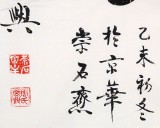 興
乙未初冬
於京華
崇石齋